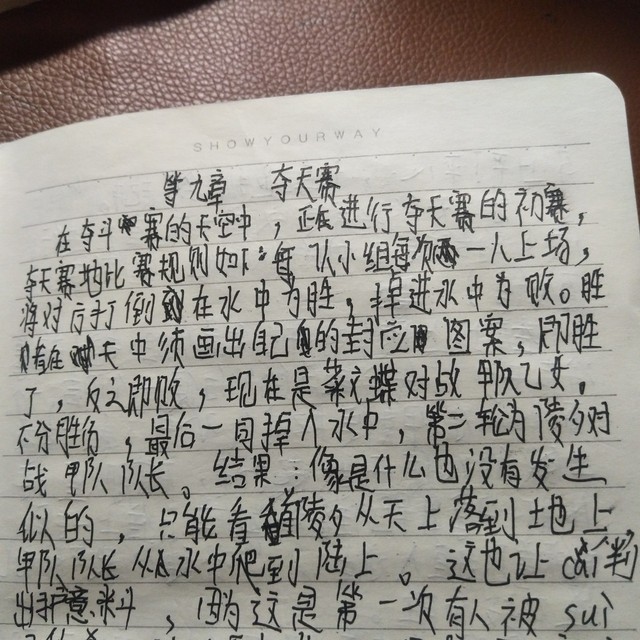 SHOWYOURWAY
第九章 夺天赛
在夺斗赛的天空中，正在进行夺天赛的初赛，
夺天赛地比赛规则如下：每队小组每次一人上场，
将对方打倒在水中为胜，掉进水中为败。胜
天中须画出自己的封应图案，即胜
了，反之即败，现在是蝶对战甲队乙女。
不分胜负，最后一同掉入水中，第二轮为陵夕对
战甲队队长。结果：像是什么也没有发生
似的，只能看着陵夕从天上落到土地上，
甲队队长从水中爬到陆上。这也让cái判
出乎意料，因为这是第一次有人被suì